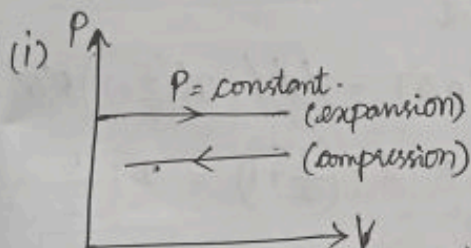 (i) P
P = constant.
(expansion)
(compression)
V